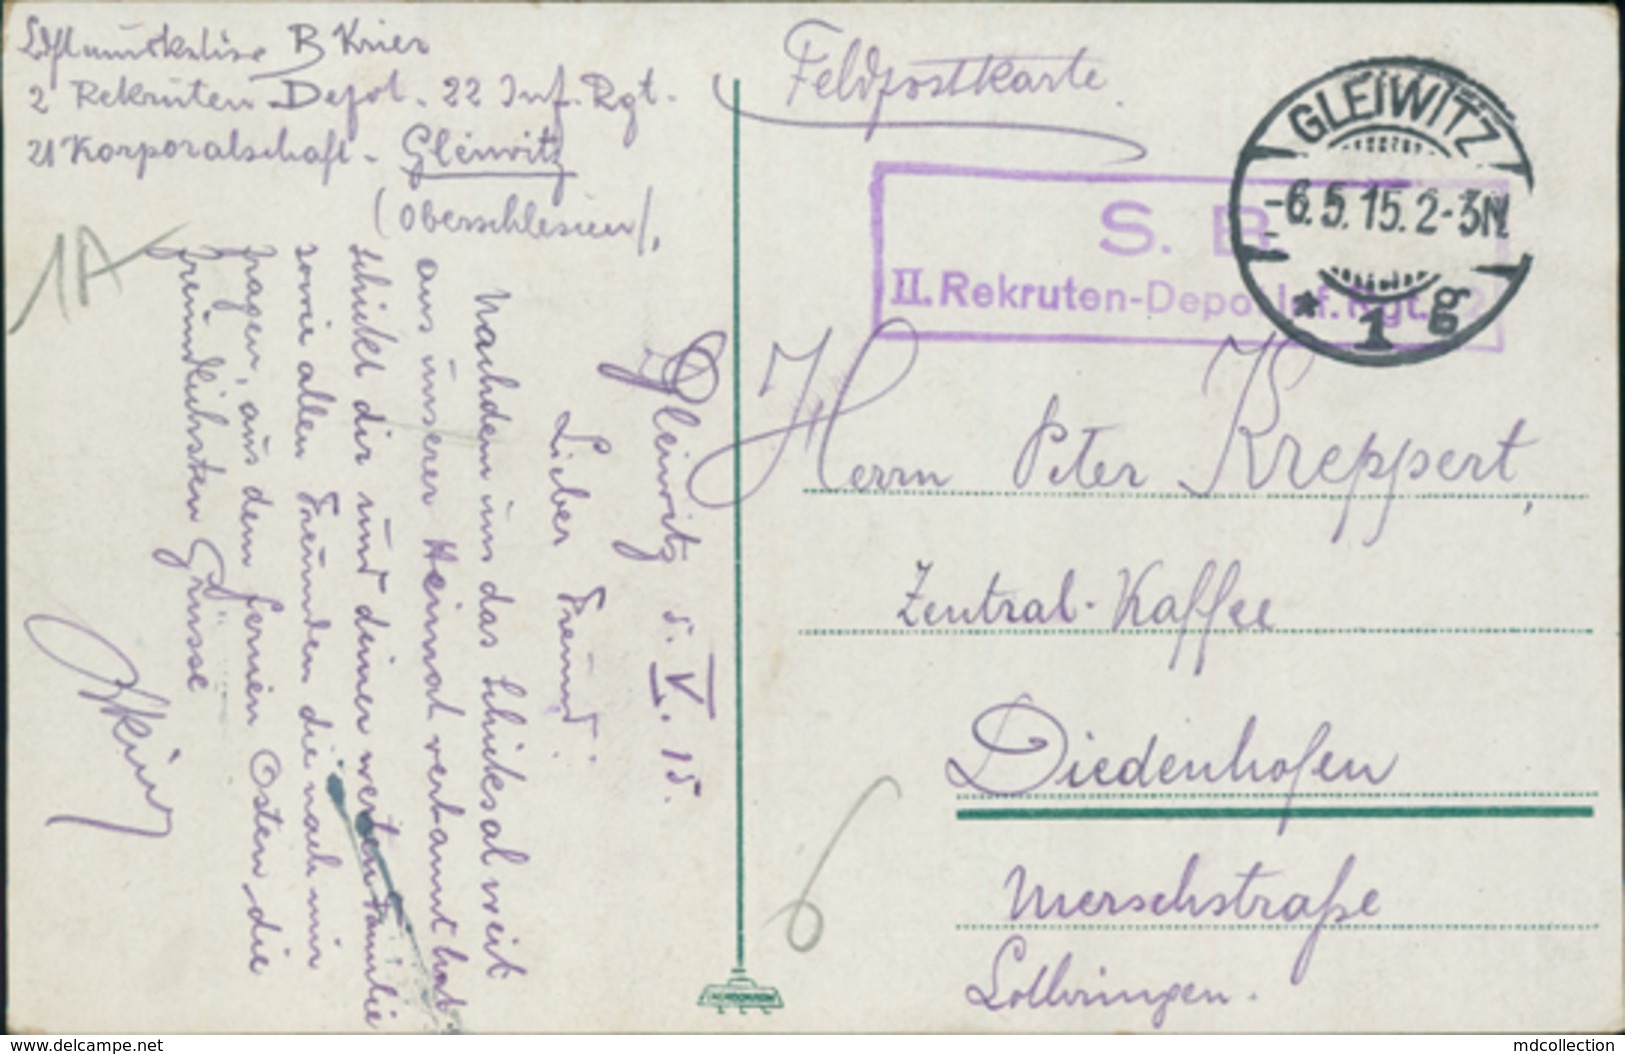 B Krier
2 Rekruten Depot. 22 Inf. Rgt.
21 Korporalschaft - Gleiwitz
(Oberschlesien),
1A
Gleiwitz 5. V. 15.
Lieber Freund.
Nachdem uns das Schicksal weit
aus unserer Heimat verbannt hat
schickt dir und deiner werten Familie
sowie allen Freunden die nach mir
fragen, aus dem fernen Osten die
freundlichsten Grüsse
Feldpostkarte
S. B.
II. Rekruten-Depot Inf. Rgt. 22
GLEIWITZ
-6.5.15.2-3N
* 1 g
Herrn Peter Kreppert,
Zentral-Kaffee
Diedenhofen
Merschstraße
Lothringen.
6
www.delcampe.net
mdcollection